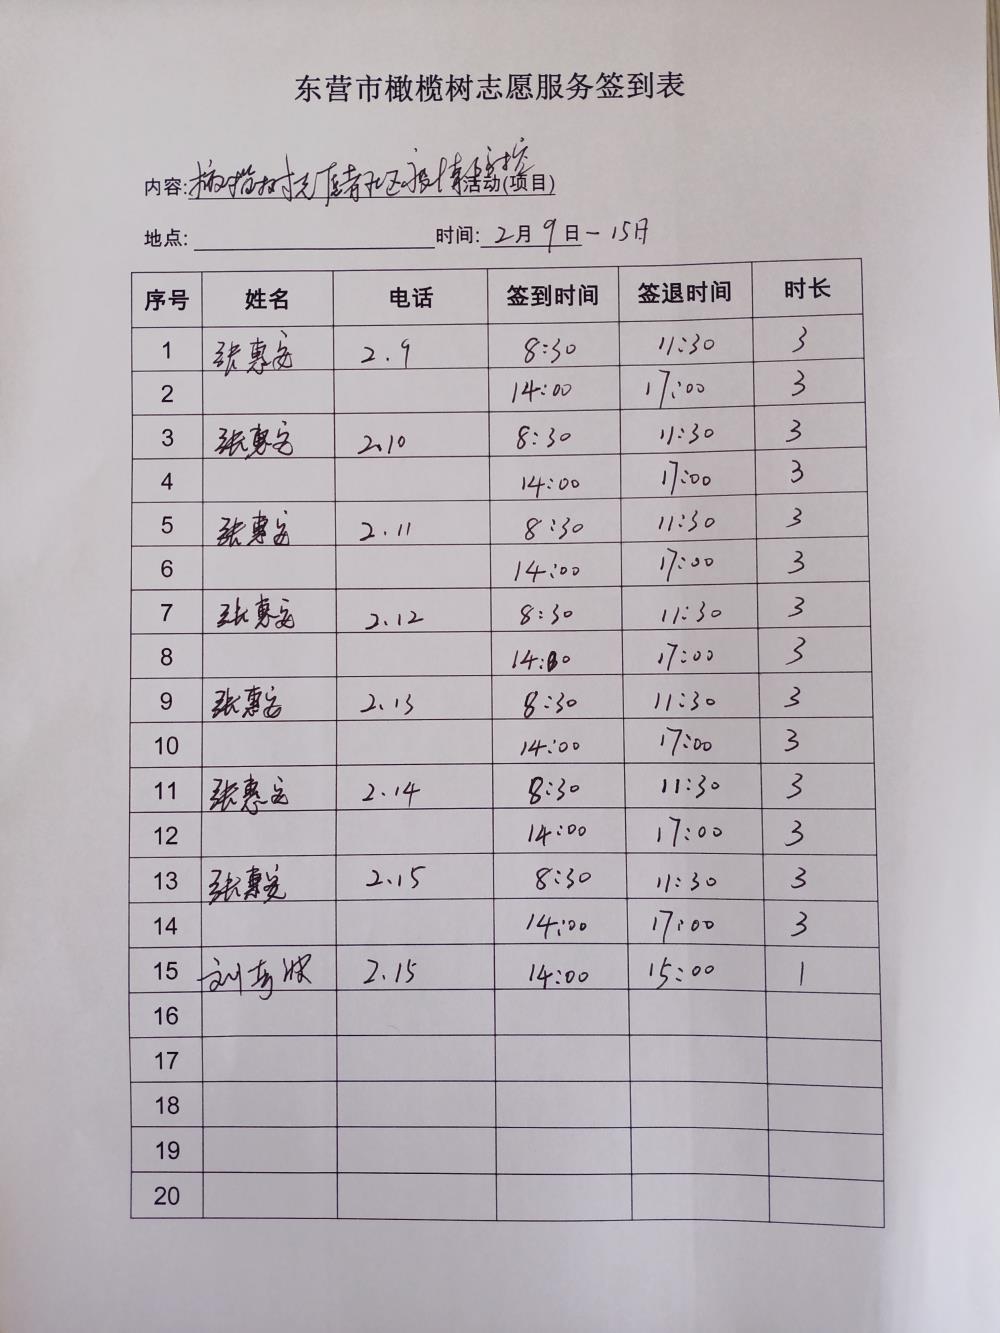 东营市橄榄树志愿服务签到表
内容: 社区疫情防控活动(项目)
地点: 时间: 2月9日-15日
序号 姓名 电话 签到时间 签退时间 时长
1 张惠安 2.9 8:30 11:30 3
2 14:00 17:00 3
3 张惠安 2.10 8:30 11:30 3
4 14:00 17:00 3
5 张惠安 2.11 8:30 11:30 3
6 14:00 17:00 3
7 张惠安 2.12 8:30 11:30 3
8 14:00 17:00 3
9 张惠安 2.13 8:30 11:30 3
10 14:00 17:00 3
11 张惠安 2.14 8:30 11:30 3
12 14:00 17:00 3
13 张惠安 2.15 8:30 11:30 3
14 14:00 17:00 3
15 刘 2.15 14:00 15:00 1
16
17
18
19
20